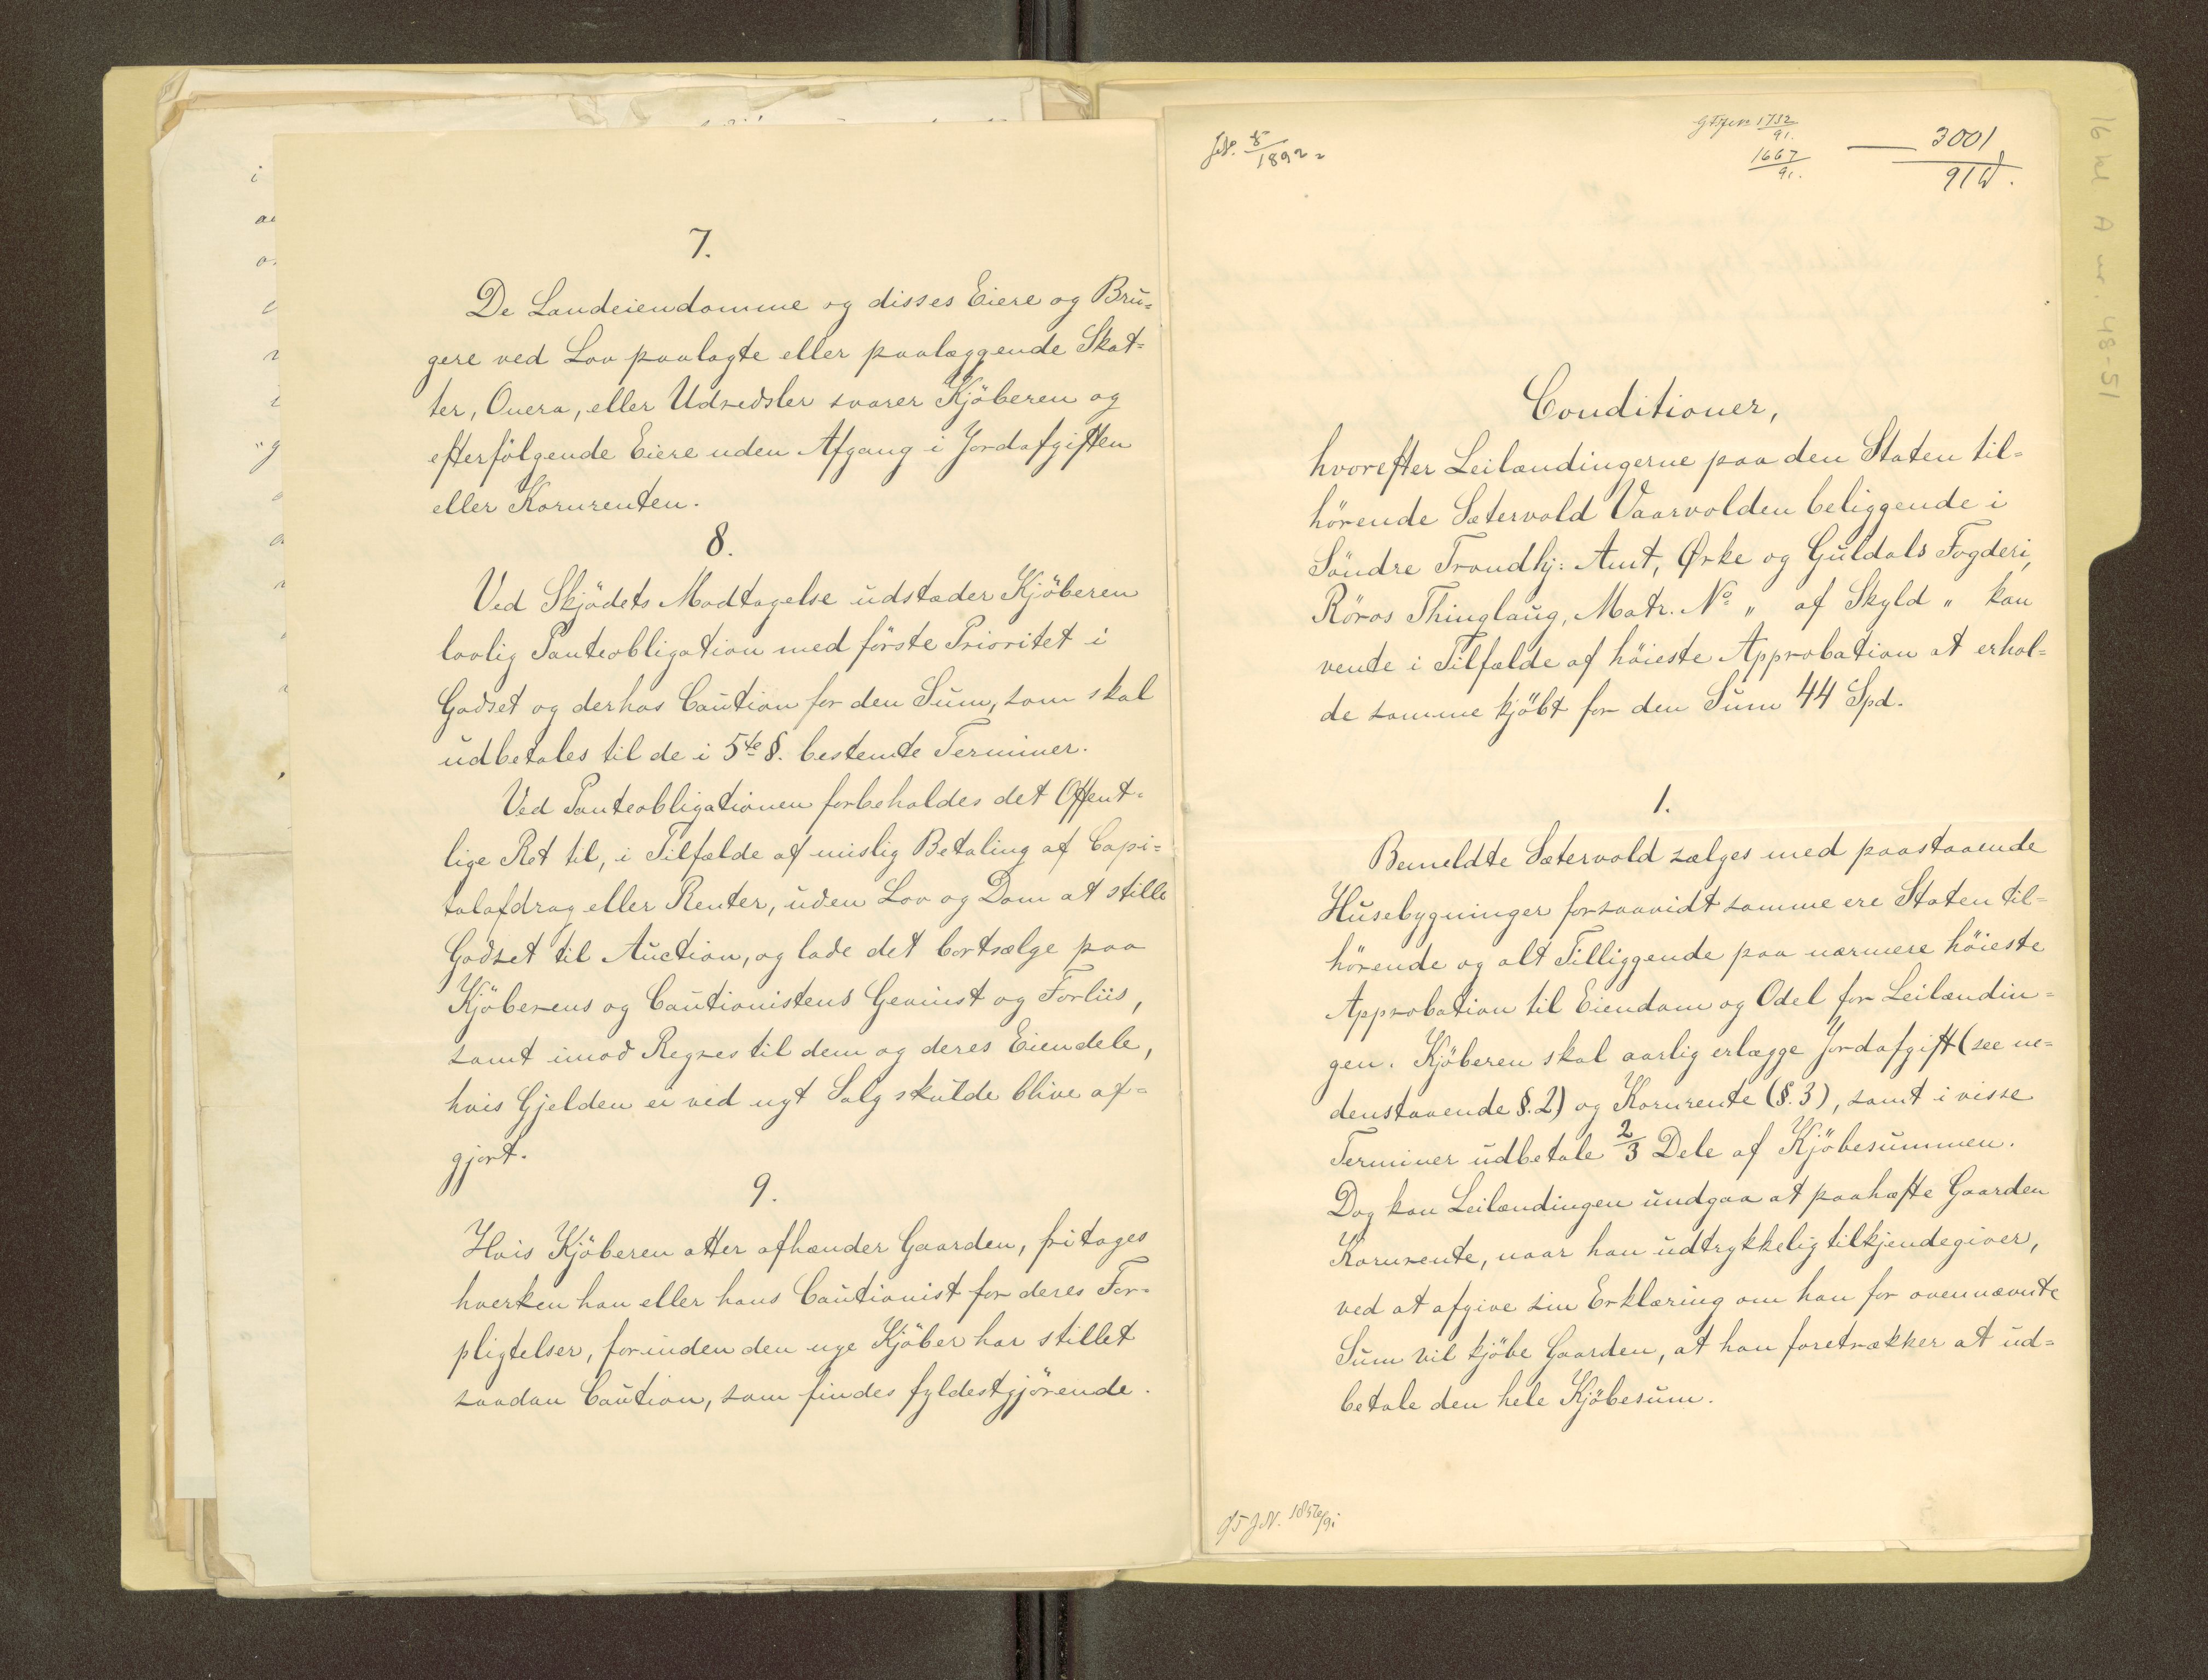 7.
De Landeiendomme og disses Eiere og Bru=
gere ved Lov paalagte eller paalæggende Skat=
ter, Onera, eller Udredsler svarer Kjöberen og
efterfölgende Eiere uden Afgang i Jordafgiften
eller Kornrenten.
8.
Ved Skjödets Modtagelse udstæder Kjöberen
lovlig Panteobligation med förste Prioritet i
Godset og derhos Caution for den Sum, som skal
udbetales til de i 5te §. bestemte Terminer.
Ved Panteobligationen forbeholdes det Offent=
lige Ret til, i Tilfælde af mislig Betaling af Capi=
talafdrag eller Renter, uden Lov og Dom at stille
Godset til Auction, og lade det bortsælge paa
Kjöberens og Cautionistens Gevinst og Forliis,
samt imod Regres til dem og deres Eiendele,
hvis Gjelden ei ved nyt Salg skulde blive af=
gjort.
9.
Hvis Kjöberen atter afhænder Gaarden, fritages
hverken han eller hans Cautionist for deres For=
pligtelser, forinden den nye Kjöber har stillet
saadan Caution, som findes fyldestgjörende.
JN. 8/1892
1732/91.
1667/91.
3001
91
16 kl A nr. 48-51
Conditioner,
hvorefter Leilændingerne paa den Staten til=
hörende Sætervold Vaarvolden beliggende i
Söndre Trondhj: Amt, Ørke og Guldals Fogderi,
Röros Thinglaug, Matr. No „ af Skyld „ kan
vente i Tilfælde af höieste Approbation at erhol=
de samme kjöbt for den Sum 44 Spd.
1.
Bemeldte Sætervold sælges med paastaaende
Husebygninger forsaavidt samme ere Staten til=
hörende og alt Tilliggende paa nærmere höieste
Approbation til Eiendom og Odel for Leilændin=
gen. Kjöberen skal aarlig erlægge Jordafgift (see ne=
denstaaende §. 2) og Kornrente (§. 3), samt i visse
Terminer udbetale 2/3 Dele af Kjöbesummen.
Dog kan Leilændingen undgaa at paahæfte Gaarden
Kornrente, naar han udtrykkelig tilkjendegiver,
ved at afgive sin Erklæring om han for ovennævnte
Sum vil kjöbe Gaarden, at han foretrækker at ud=
betale den hele Kjöbesum.